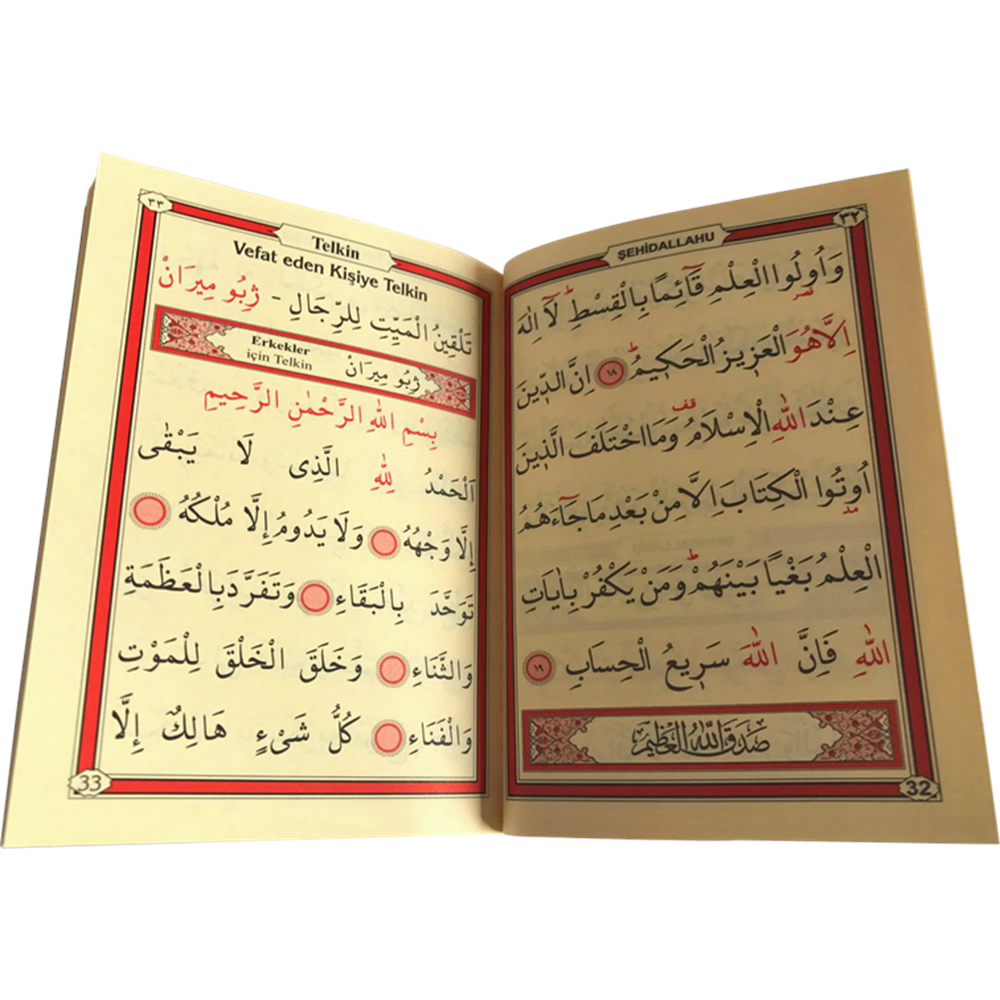 ٣٢
ŞEHİDALLAHU
وَاُو۬لُوا الْعِلْمِ قَٓائِمًا بِالْقِسْطِۜ لَٓا اِلٰهَ
قصر
اِلَّا هُوَ الْعَز۪يزُ الْحَك۪يمُۜ ١٨ اِنَّ الدّ۪ينَ
قف
عِنْدَ اللّٰهِ الْاِسْلَامُ وَمَا اخْتَلَفَ الَّذ۪ينَ
اُو۫تُوا الْكِتَابَ اِلَّا مِنْ بَعْدِ مَا جَٓاءَهُمُ
مد
الْعِلْمُ بَغْيًا بَيْنَهُمْۜ وَمَنْ يَكْفُرْ بِاٰيَاتِ
اللّٰهِ فَاِنَّ اللّٰهَ سَر۪يعُ الْحِسَابِ ١٩
صَدَقَ اللّٰهُ الْعَظِيمُ
32
٣٣
Telkin
Vefat eden Kişiye Telkin
تَلْقِينُ الْمَيِّتِ لِلرِّجَالِ - ژِبُو مِيرَانْ
Erkekler
için Telkin
ژِبُو مِيرَانْ
بِسْمِ اللّٰهِ الرَّحْمٰنِ الرَّحِيمِ
اَلْحَمْدُ لِلّٰهِ الَّذِى لَا يَبْقٰى
اِلَّا وَجْهُهُ وَلَا يَدُومُ اِلَّا مُلْكُهُ
تَوَحَّدَ بِالْبَقَاءِ وَتَفَرَّدَ بِالْعَظَمَةِ
وَالثَّنَاءِ وَخَلَقَ الْخَلْقَ لِلْمَوْتِ
وَالْفَنَاءِ كُلُّ شَىْءٍ هَالِكٌ اِلَّا
33